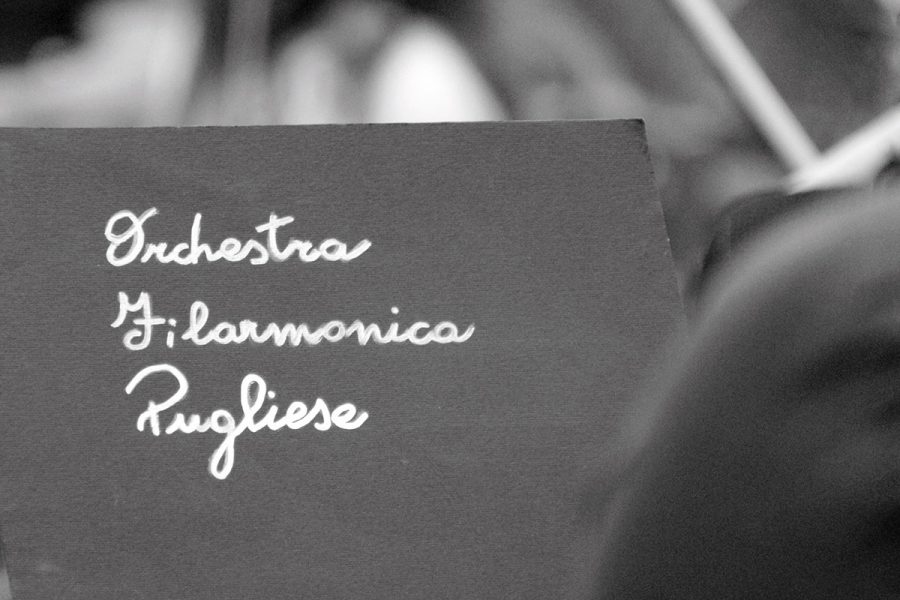 Orchestra
Filarmonica
Pugliese